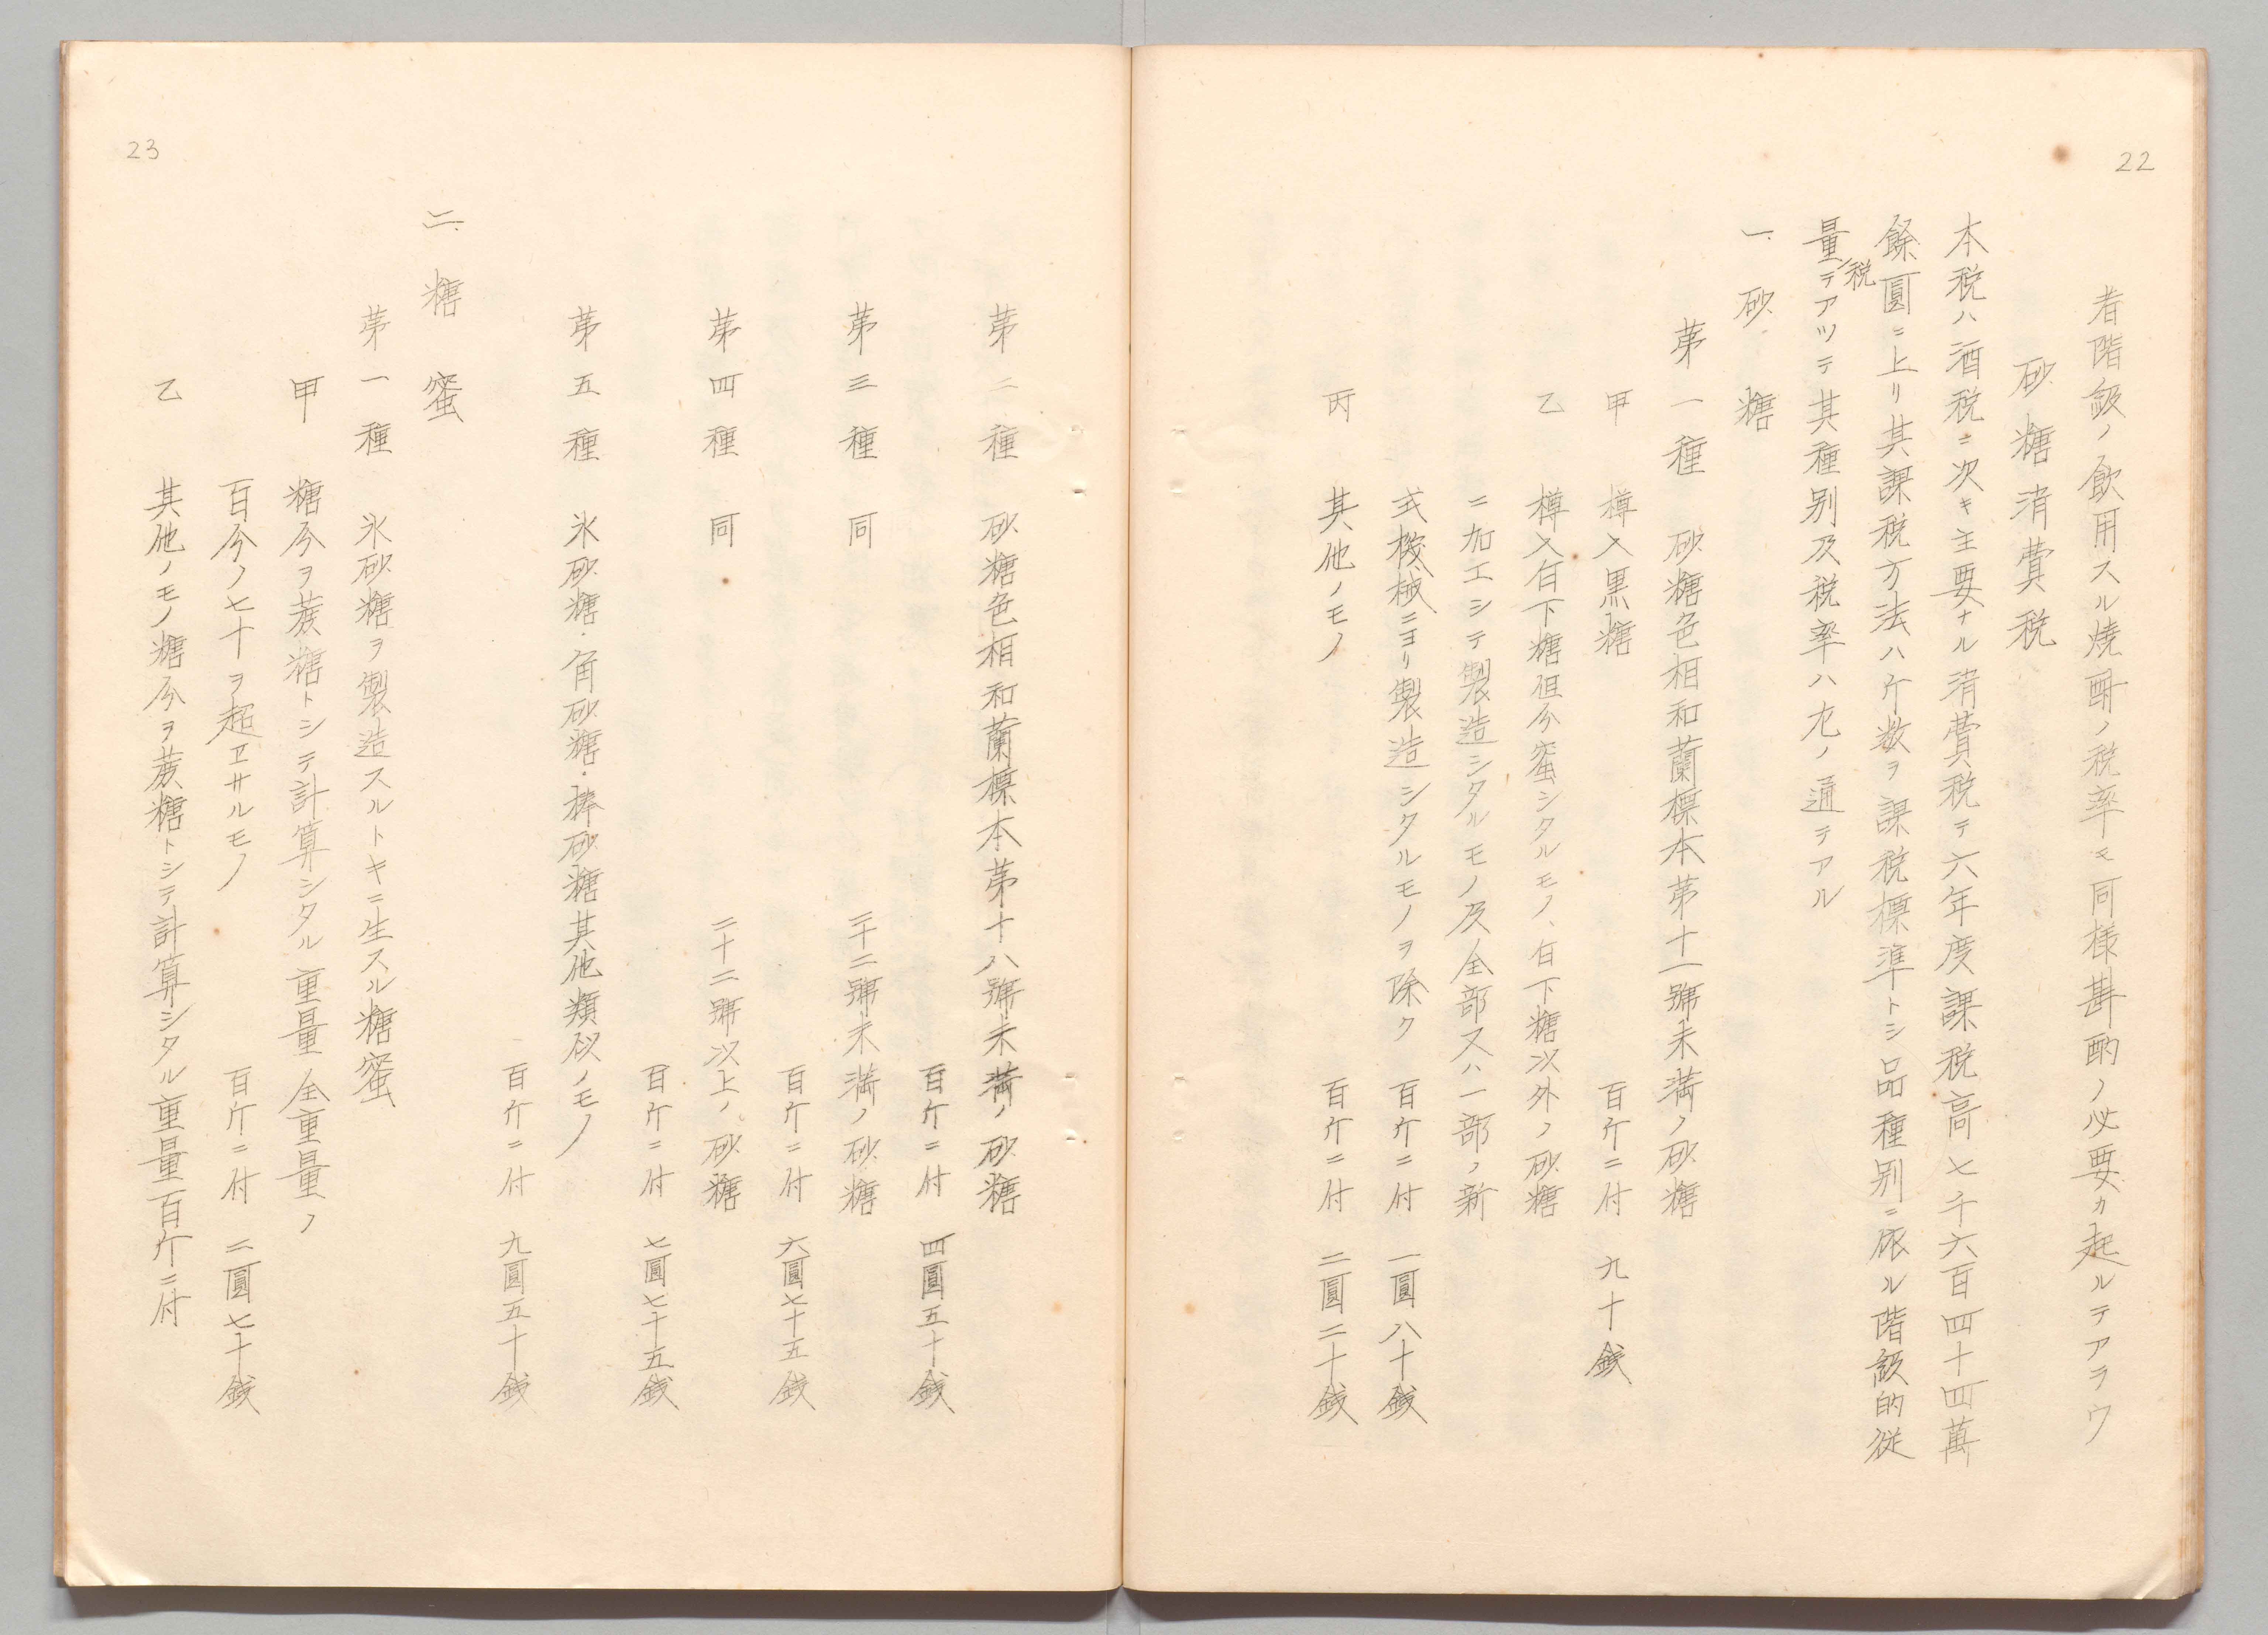 22
者階級ノ飲用スル焼酎ノ税率モ同様斟酌ノ必要カ起ルテアラウ
砂糖消費税
本税ハ酒税ニ次キ主要ナル消費税テ六年度課税高七千六百四十四萬
餘圓ニ上リ其課税方法ハ斤数ヲ課税標準トシ品種別ニ依ル階級的従
量税テアツテ其種別及税率ハ左ノ通テアル
一、砂糖
第一種 砂糖色相和蘭標本第十一號未満ノ砂糖
甲 樽入黒糖 百斤ニ付 九十銭
乙 樽入白下糖但分蜜シタルモノ、白下糖以外ノ砂糖
ニ加工シテ製造シタルモノ及全部又ハ一部ノ新
式機械ニヨリ製造シタルモノヲ除ク 百斤ニ付 一圓八十銭
丙 其他ノモノ 百斤ニ付 二圓二十銭
第二種 砂糖色相和蘭標本第十八號未満ノ砂糖
百斤ニ付 四圓五十銭
第三種 同 二十二號未満ノ砂糖
百斤ニ付 六圓七十五銭
第四種 同 二十二號以上ノ砂糖
百斤ニ付 七圓七十五銭
第五種 氷砂糖・角砂糖・棒砂糖其他類似ノモノ
百斤ニ付 九圓五十銭
二、糖蜜
第一種 氷砂糖ヲ製造スルトキニ生スル糖蜜
甲 糖分ヲ蔗糖トシテ計算シタル重量全重量ノ
百分ノ七十ヲ超ヱサルモノ 百斤ニ付 二圓七十銭
乙 其他ノモノ糖分ヲ蔗糖トシテ計算シタル重量百斤ニ付
23